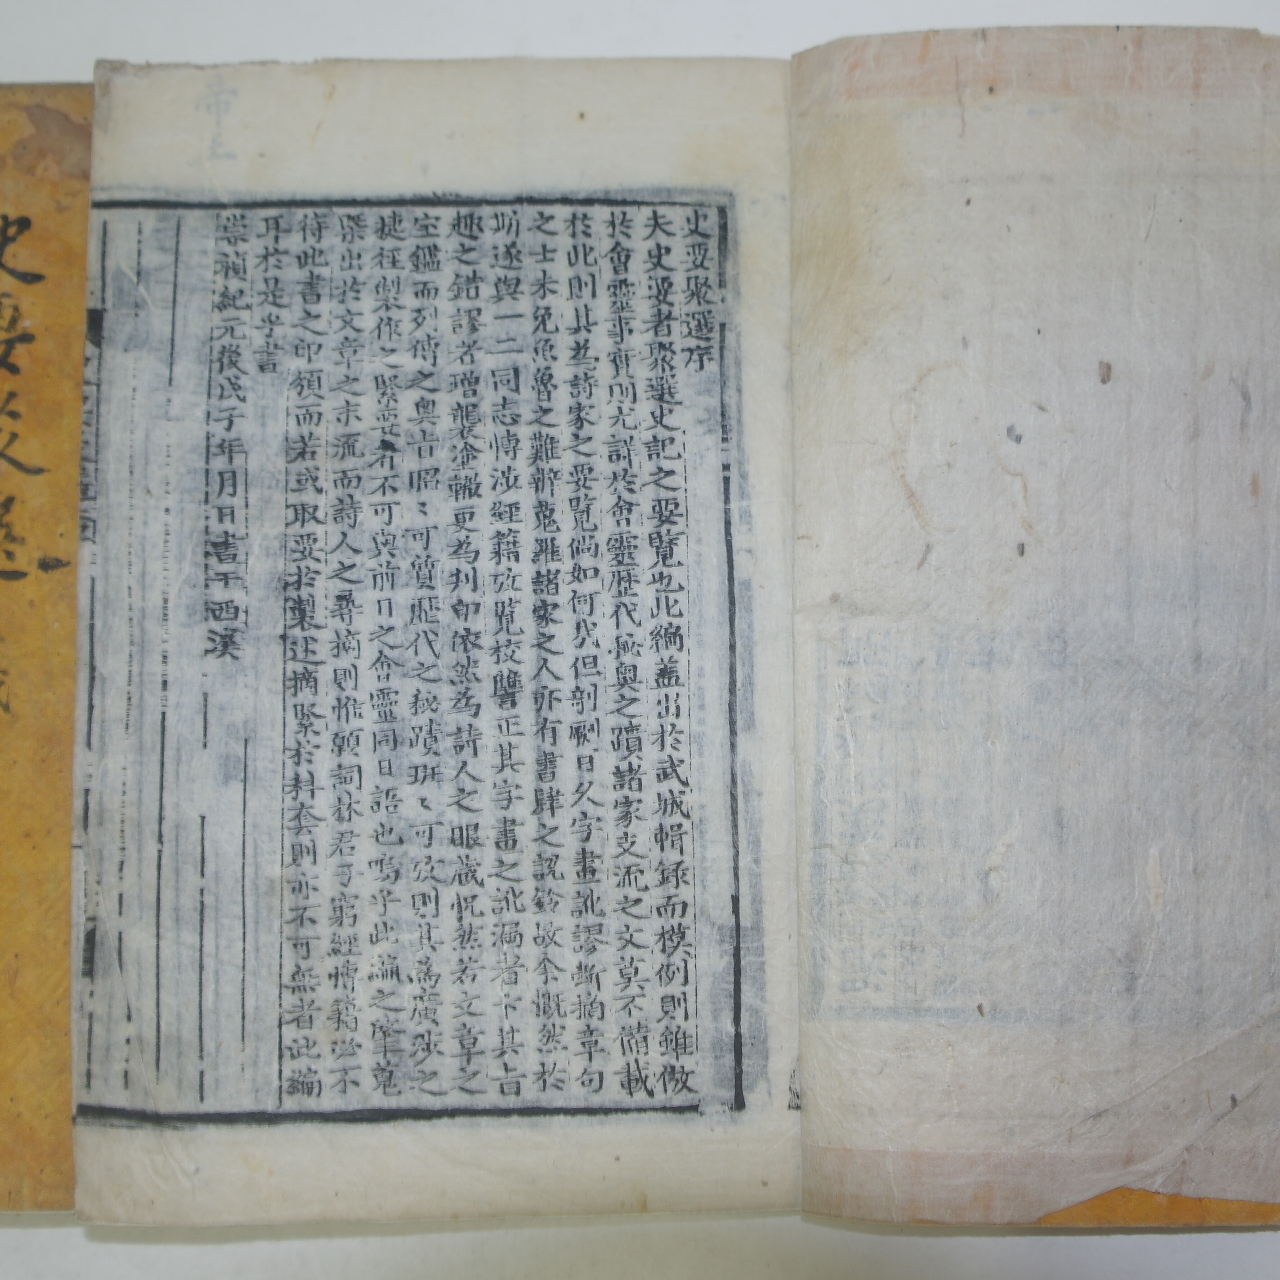 史要聚選序
夫史要者聚選史記之要覽也此編蓋出於武城輯錄而模例則雖倣
於會靈事實則尤詳於會靈歷代秘奧之蹟諸家支流之文莫不備載
於此則其爲詩家之要覽倘如何哉但剞劂日久字畫訛謬斷摘章句
之士未免魚魯之難辨蒐羅諸家之人亦有書肆之說鈴故余慨然於
斯遂與一二同志博涉經籍攷覽校讐正其字畫之訛漏者卞其旨
趣之錯謬者增襲塗轍更為刋印依然為詩人之眼藏怳然若文章之
宝鑑而列傳之奧旨昭〻可質歷代之秘蹟班〻可攷則其爲廣涉之
捷徑製作之緊要者不可與前日之會靈同日語也嗚乎此編之肇蒐
槩出於文章之末流而詩人之尋摘則惟願詞林君子窮經博籍必不
待此書之印頒而若或取要於製述摘緊於科套則亦不可無者此編
耳於是乎書
崇禎紀元後戊子年月日書于西溪
帝王
史要聚選